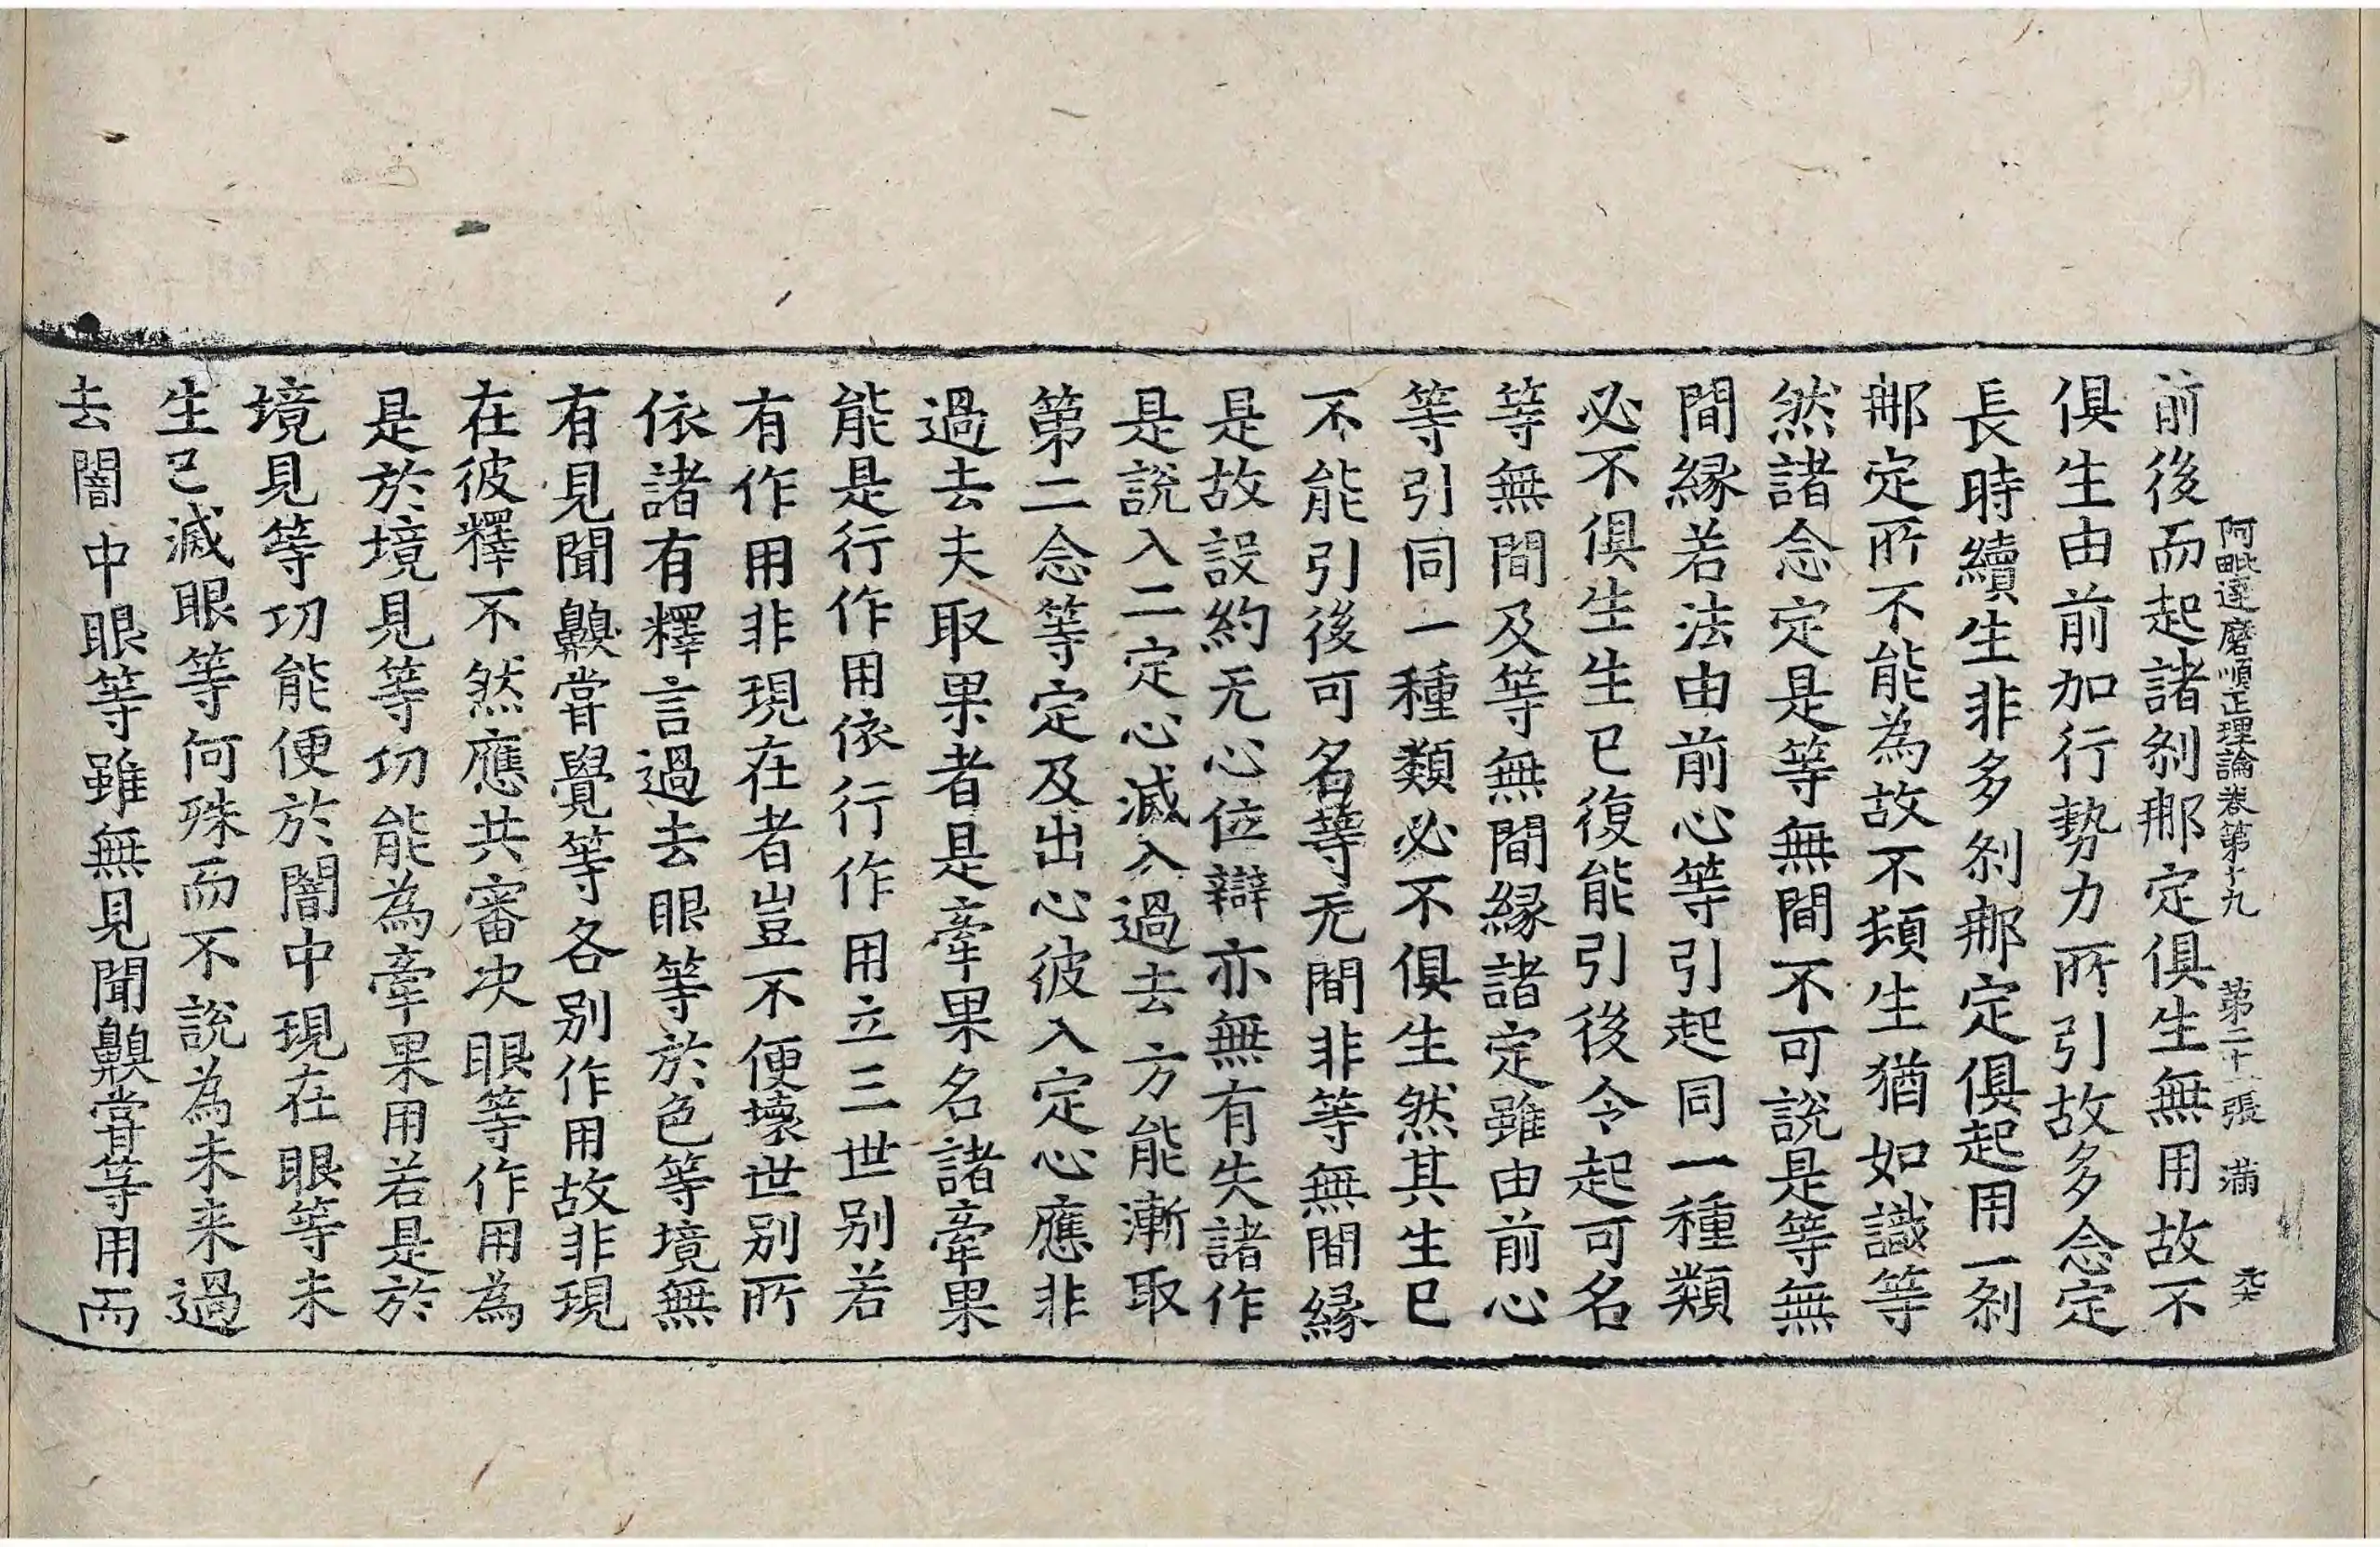 阿毗達磨順正理論卷第十九 第二十一張 滿
前後而起諸刹那定俱生無用故不
俱生由前加行勢力所引故多念定
長時續生非多刹那定俱起用一刹
那定所不能為故不頓生猶如識等
然諸念定是等無間不可說是等無
間緣若法由前心等引起同一種類
必不俱生生已復能引後令起可名
等無間及等無間緣諸定雖由前心
等引同一種類必不俱生然其生已
不能引後可名等无間非等無間緣
是故設約无心位辯亦無有失諸作
是說入二定心滅入過去方能漸取
第二念等定及出心彼入定心應非
過去夫取果者是牽果名諸牽果
能是行作用依行作用立三世別若
有作用非現在者豈不便壞世別所
依諸有釋言過去眼等於色等境無
有見聞齅甞覺等各別作用故非現
在彼釋不然應共審決眼等作用為
是於境見等功能為牽果用若是於
境見等功能便於闇中現在眼等未
生已滅眼等何殊而不說為未来過
去闇中眼等雖無見聞齅甞等用而